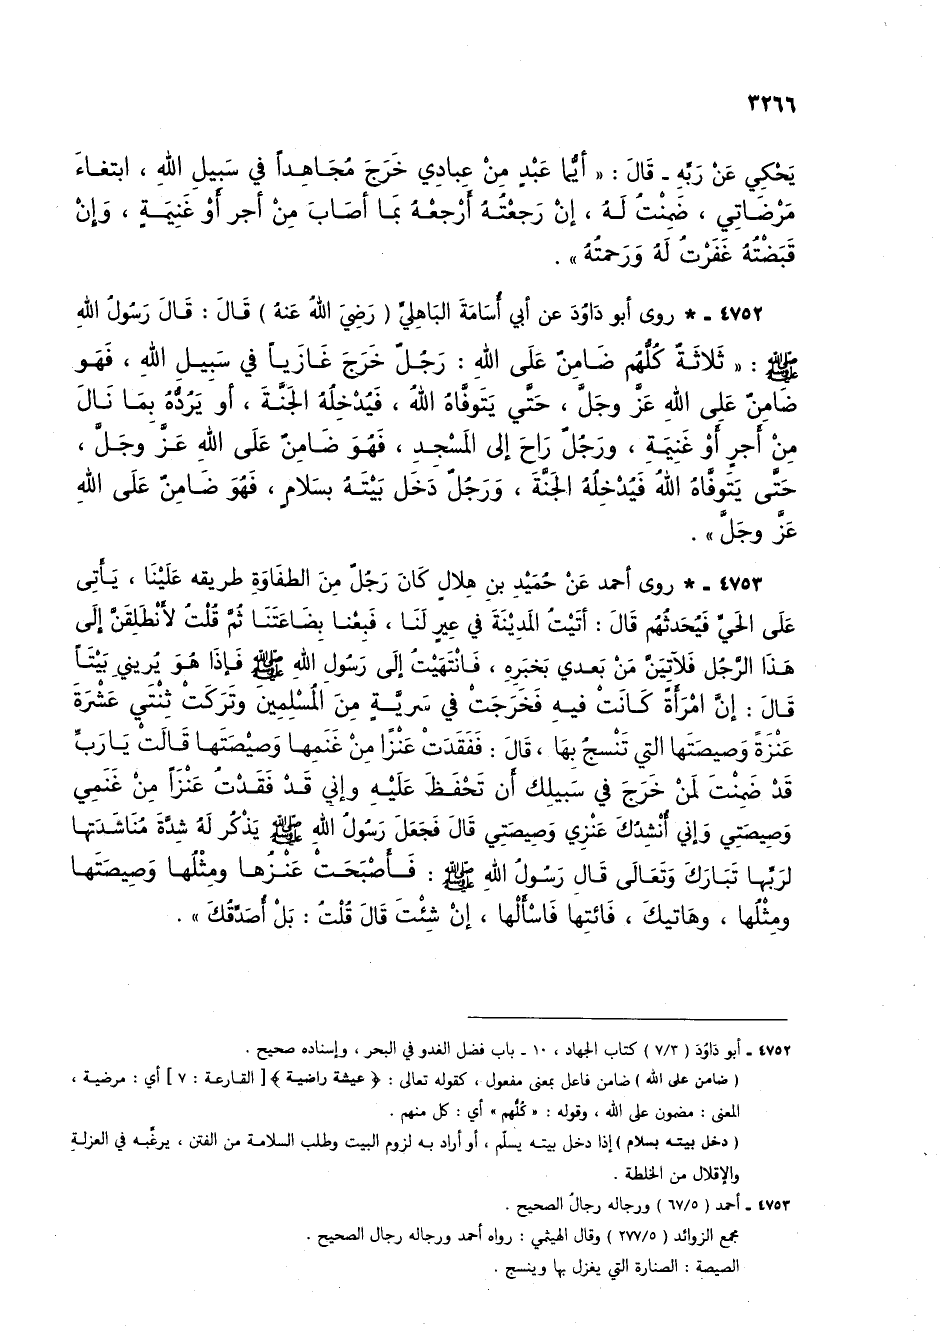 ٣٢٦٦
يَحْكِي عَنْ رَبِّهِ ـ قَالَ : « أَيُّما عَبْدٍ مِنْ عِبادِي خَرَجَ مُجَاهِداً فِي سَبِيلِ اللهِ ، ابتغاءَ
مَرْضَاتِي ، ضَمِنْتُ لَهُ ، إِنْ رَجعْتُهُ أَرْجعْهُ بما أصَابَ مِنْ أجرٍ أوْ غَنِيمَةٍ ، وَإِنْ
قَبَضْتُهُ غَفَرْتُ لَهُ وَرَحمتُهُ » .
٤٧٥٢ ـ * روى أبو دَاوُدَ عن أبي أُسَامَةَ البَاهِليِّ ( رَضِيَ اللهُ عَنهُ ) قَالَ : قَالَ رَسُولُ اللهِ
ﷺ : « ثَلاثَةٌ كُلُّهُم ضَامِنٌ عَلَى اللهِ : رَجُلٌ خَرَجَ غَازِياً في سَبِيلِ اللهِ ، فَهُو
ضَامِنٌ عَلى اللهِ عَزَّ وجَلَّ ، حَتَّي يَتَوفَّاهُ اللهُ ، فَيُدْخِلَهُ الجَنَّةَ ، أو يَرُدُّهُ بِمَا نَالَ
مِنْ أَجرٍ أَوْ غَنِيمَةٍ ، ورَجُلٌ رَاحَ إلى المَسْجِدِ ، فَهُوَ ضَامِنٌ عَلَى اللهِ عَزَّ وجَلَّ ،
حَتَّى يَتَوفَّاهُ اللهُ فَيُدْخِلَهُ الجَنَّةَ ، وَرَجُلٌ دَخَل بَيْتَهُ بسَلامٍ ، فَهُوَ ضَامِنٌ عَلَى اللهِ
عَزَّ وجَلَّ » .
٤٧٥٣ ـ * روى أحمد عَنْ حُمَيْدٍ بن هِلال كَانَ رَجُلٌ مِنَ الطفَاوَةِ طريقه عَلَيْنا ، يَأْتِى
عَلَى الحَيِّ فَيُحَدثُهُم قَالَ : أتَيْتُ المَدِيْنَةَ في عِيرٍ لَنا ، فَبِعْنا بِضَاعَتَنا ثُمَّ قُلْتُ لأنْطَلِقَنَّ إلَى
هَذَا الرَّجُلِ فَلآتِيَنَّ مَنْ بَعدي بخَبَرِهِ ، فَانْتَهَيْتُ إلَى رَسُولِ اللهِ ﷺ فَإذَا هُوَ يُرِيني بَيْتَاً
قَالَ : إنَّ امْرَأةً كَانَتْ فيهِ فَخَرَجَتْ في سَرِيَّةٍ مِنَ المُسْلِمِينَ وتَرَكَتْ ثِنْتَي عَشْرَةَ
عَنْزَةً وَصِيصَتَها التي تَنْسجُ بهَا ، قَالَ : فَفَقَدَتْ عَنْزًا مِنْ غَنمِها وَصِيْصَتَها قَالَتْ يَارَبِّ
قَدْ ضَمِنْتَ لَمنْ خَرَجَ في سَبِيلِكَ أن تَحْفَظَ عَلَيْهِ وإني قَدْ فَقَدْتُ عَنْزَاً مِنْ غَنَمِي
وَصِيصَتِي وَإِني أُنْشِدُكَ عَنْزِي وَصِيصَتِي قَالَ فَجَعَلَ رَسُولُ اللهِ ﷺ يَذْكُر لَهُ شِدَّةَ مُنَاشَدَتِها
لرَبِّها تَبَارَكَ وَتَعَالَى قَال رَسُولُ اللهِ ﷺ : فَأَصْبَحَتْ عَنْزُها ومِثْلُها وَصِيصَتَها
ومِثْلُها ، وهَاتِيكَ ، فَائتِها فَاسْألْها ، إنْ شئْتَ قَالَ قُلْتُ : بَلْ أُصَدِّقُكَ » .
٤٧٥٢ ـ أبو دَاوُدَ ( ٧/٣ ) كتاب الجهاد ، ١٠ ـ باب فضل الغدو في البحر ، وإسناده صحيح .
( ضامن على الله ) ضامن فاعل بمعنى مفعول ، كقوله تعالى : ﴿ عيشة راضية ﴾ [ القارعة : ٧ ] أي : مرضية ،
المعنى : مضون على الله ، وقوله : « كُلُّهم » أي : كل منهم .
( دخل بيته بسلام ) إذا دخل بيته يسلّم ، أو أراد به لزوم البيت وطلب السلامة من الفتن ، يرغّبه في العزلةِ
والإقلال من الخلطة .
٤٧٥٣ ـ أحمد ( ٦٧/٥ ) ورجاله رجالُ الصحيح .
مجمع الزوائد ( ٢٧٧/٥ ) وقال الهيثمي : رواه أحمد ورجاله رجال الصحيح .
الصيصة : الصنارة التي يغزل بها وينسج .